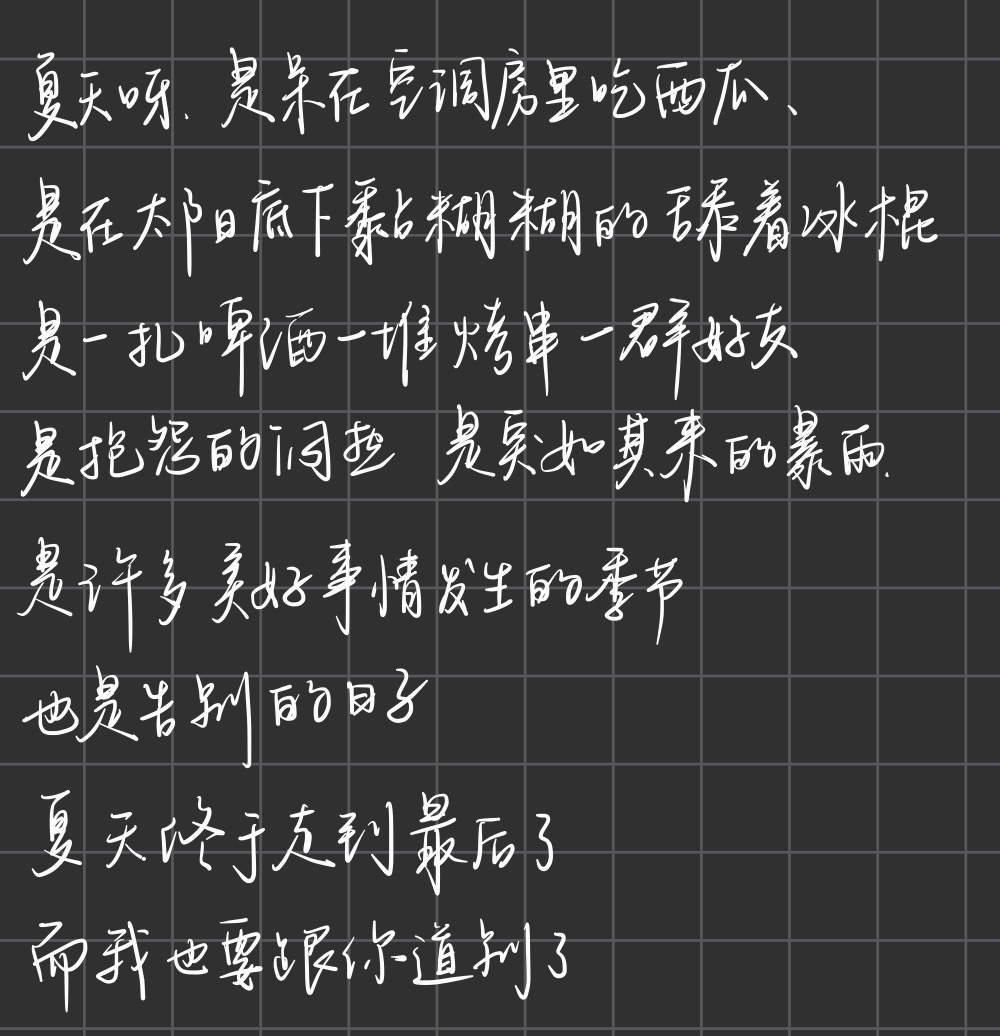 夏天呀.是呆在空调房里吃西瓜、
是在太阳底下黏糊糊的舔着冰棍
是一扎啤酒一堆烤串一群好友
是抱怨的闷热 是突如其来的暴雨.
是许多美好事情发生的季节
也是告别的日子
夏天终于走到最后了
而我也要跟你道别了